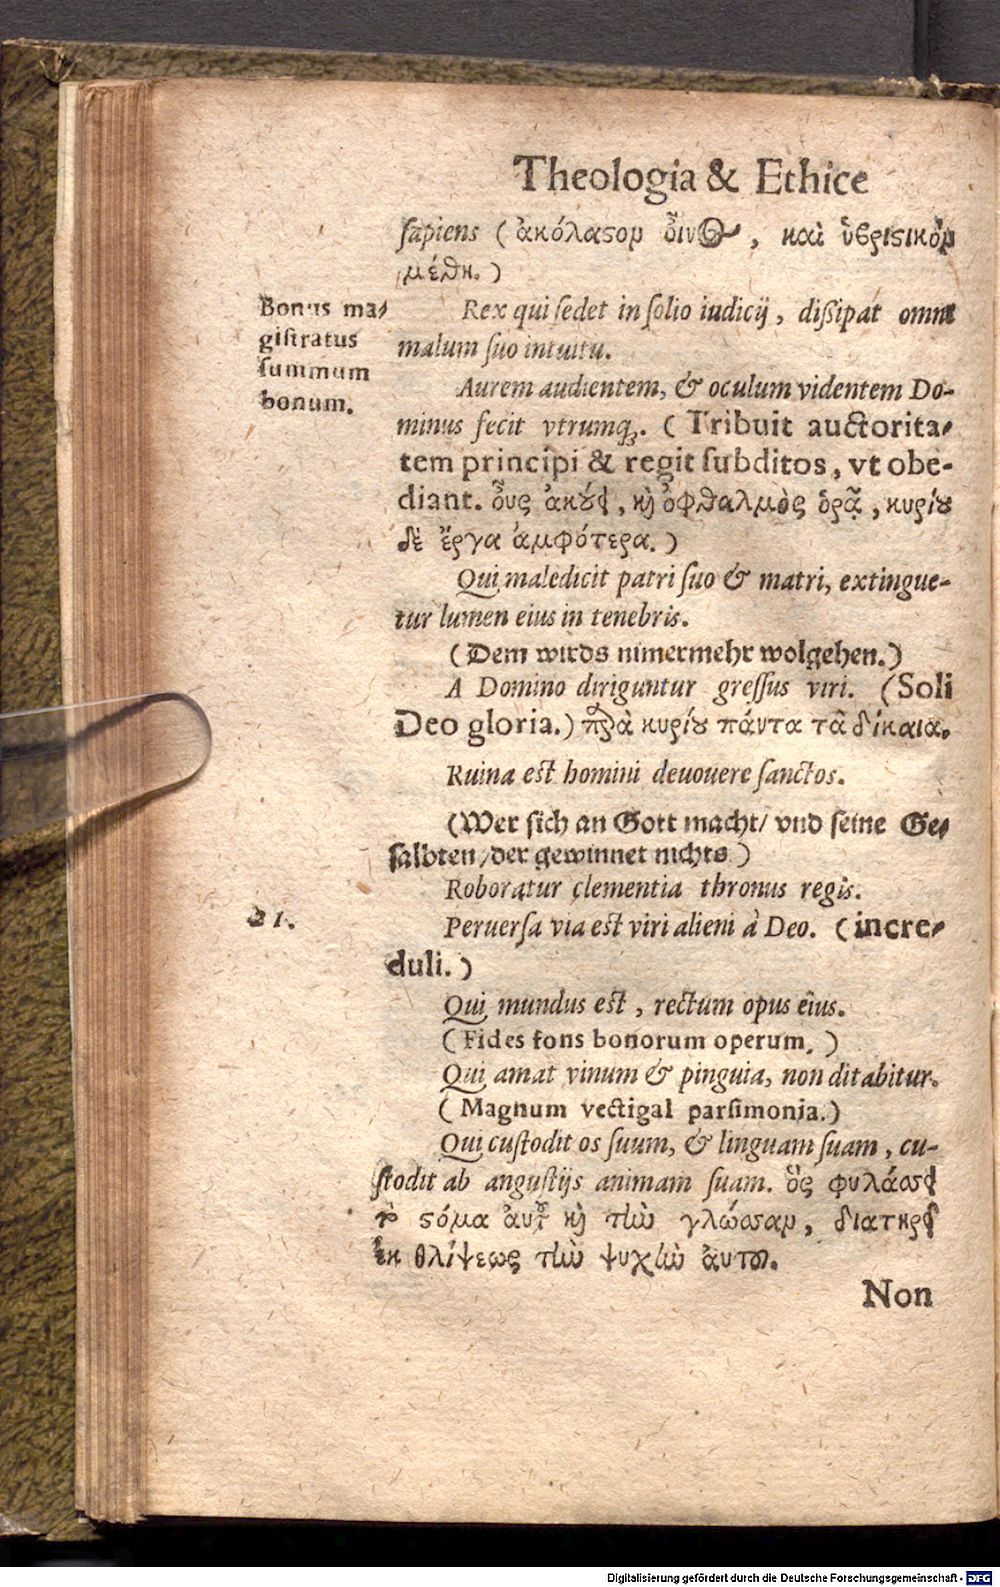 Theologia & Ethice
sapiens (ἀκόλαστον οἶνος, καὶ ὑβριστικὸν
μέθη.)
Bonus ma-
gistratus
summum
bonum.
Rex qui sedet in solio iudicij, dißipat omne
malum suo intuitu.
Aurem audientem, & oculum videntem Do-
minus fecit vtrumq;. (Tribuit auctorita-
tem principi & regit subditos, vt obe-
diant. οὖς ἀκούει, καὶ ὀφθαλμὸς ὁρᾷ, κυρίου
δὲ ἔργα ἀμφότερα.)
Qui maledicit patri suo & matri, extingue-
tur lumen eius in tenebris.
(Dem wirds nimermehr wolgehen.)
A Domino diriguntur gressus viri. (Soli
Deo gloria.) παρὰ κυρίου πάντα τὰ δίκαια.
Ruina est homini deuouere sanctos.
(Wer sich an Gott macht/ vnd seine Ge-
salbten/der gewinnet nichts)
Roboratur clementia thronus regis.
21.
Peruersa via est viri alieni à Deo. (incre-
duli.)
Qui mundus est, rectum opus eius.
(Fides fons bonorum operum.)
Qui amat vinum & pinguia, non ditabitur.
(Magnum vectigal parsimonia.)
Qui custodit os suum, & linguam suam, cu-
stodit ab angustijs animam suam. ὃς φυλάσσει
τὸ στόμα αὐτοῦ καὶ τὴν γλῶσσαν, διατηρεῖ
ἐκ θλίψεως τὴν ψυχὴν αὐτοῦ.
Non
Digitalisierung gefördert durch die Deutsche Forschungsgemeinschaft - DFG